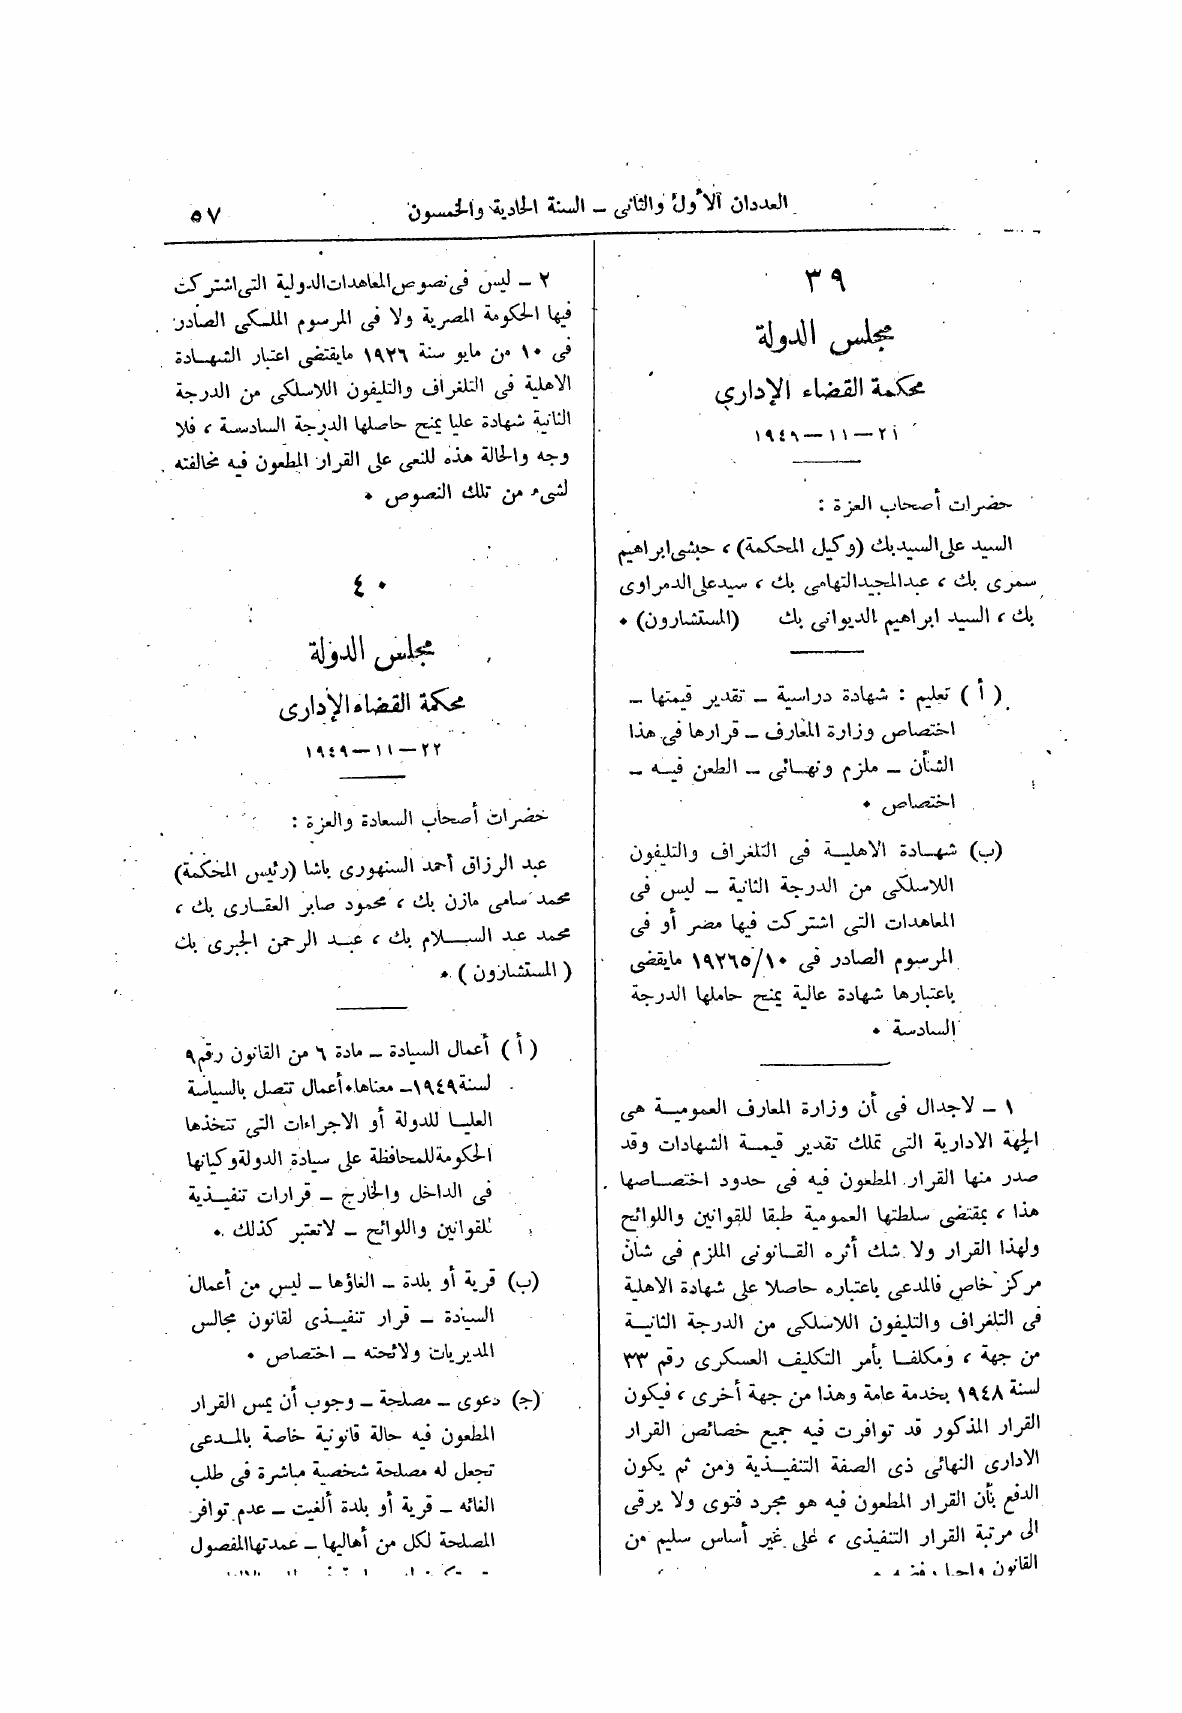 العددان الأول والثانى – السنة الحادية والخمسون
٥٧
٣٩
مجلس الدولة
محكمة القضاء الإداري
٢١ – ١١ – ١٩٤٩
حضرات أصحاب العزة :
السيد على السيد بك (وكيل المحكمة) ، حبشى ابراهيم
سمرى بك ، عبدالمجيد التهامى بك ، سيد على الدمراوى
بك ، السيد ابراهيم الديوانى بك (المستشارون) ٠
( أ ) تعليم : شهادة دراسية – تقدير قيمتها –
اختصاص وزارة المعارف – قرارها فى هذا
الشأن – ملزم ونهائى – الطعن فيه –
اختصاص ٠
(ب) شهادة الاهلية فى التلغراف والتليفون
اللاسلكى من الدرجة الثانية – ليس فى
المعاهدات التى اشتركت فيها مصر أو فى
المرسوم الصادر فى ١٩٢٦٥/١٠ مايقضى
باعتبارها شهادة عالية يمنح حاملها الدرجة
السادسة ٠
١ – لاجدال فى أن وزارة المعارف العمومية هى
الجهة الادارية التى تملك تقدير قيمة الشهادات وقد
صدر منها القرار المطعون فيه فى حدود اختصاصها
هذا ، بمقتضى سلطتها العمومية طبقا للقوانين واللوائح
ولهذا القرار ولا شك أثره القانونى الملزم فى شان
مركز خاص فالمدعى باعتباره حاصلا على شهادة الاهلية
فى التلغراف والتليفون اللاسلكى من الدرجة الثانية
من جهة ، ومكلفا بأمر التكليف العسكرى رقم ٣٣
لسنة ١٩٤٨ بخدمة عامة وهذا من جهة أخرى ، فيكون
القرار المذكور قد توافرت فيه جميع خصائص القرار
الادارى النهائى ذى الصفة التنفيذية ومن ثم يكون
الدفع بأن القرار المطعون فيه هو مجرد فتوى ولا يرقى
الى مرتبة القرار التنفيذى ، على غير أساس سليم من
القانون واجبا رفضه ٠
٢ – ليس فى نصوص المعاهدات الدولية التى اشتركت
فيها الحكومة المصرية ولا فى المرسوم الملكى الصادر
فى ١٠ من مايو سنة ١٩٢٦ مايقتضى اعتبار الشهادة
الاهلية فى التلغراف والتليفون اللاسلكى من الدرجة
الثانية شهادة عليا يمنح حاصلها الدرجة السادسة ، فلا
وجه والحالة هذه للنعى على القرار المطعون فيه مخالفته
لشىء من تلك النصوص ٠
٤٠
مجلس الدولة
محكمة القضاء الإدارى
٢٢ – ١١ – ١٩٤٩
حضرات أصحاب السعادة والعزة :
عبد الرزاق أحمد السنهورى باشا (رئيس المحكمة)
محمد سامى مازن بك ، محمود صابر العقارى بك ،
محمد عبد السلام بك ، عبد الرحمن الجبرى بك
( المستشارون ) ٠
( أ ) أعمال السيادة – مادة ٦ من القانون رقم ٩
لسنة ١٩٤٩ – معناها ٠ أعمال تتصل بالسياسة
العليا للدولة أو الاجراءات التى تتخذها
الحكومة للمحافظة على سيادة الدولة وكيانها
فى الداخل والخارج – قرارات تنفيذية
للقوانين واللوائح – لاتعتبر كذلك ٠
(ب) قرية أو بلدة – الغاؤها – ليس من أعمال
السيادة – قرار تنفيذى لقانون مجالس
المديريات ولائحته – اختصاص ٠
(ج) دعوى – مصلحة – وجوب أن يمس القرار
المطعون فيه حالة قانونية خاصة بالمدعى
تجعل له مصلحة شخصية مباشرة فى طلب
الغائه – قرية أو بلدة ألغيت – عدم توافر
المصلحة لكل من أهاليها – عمدتها المفصول